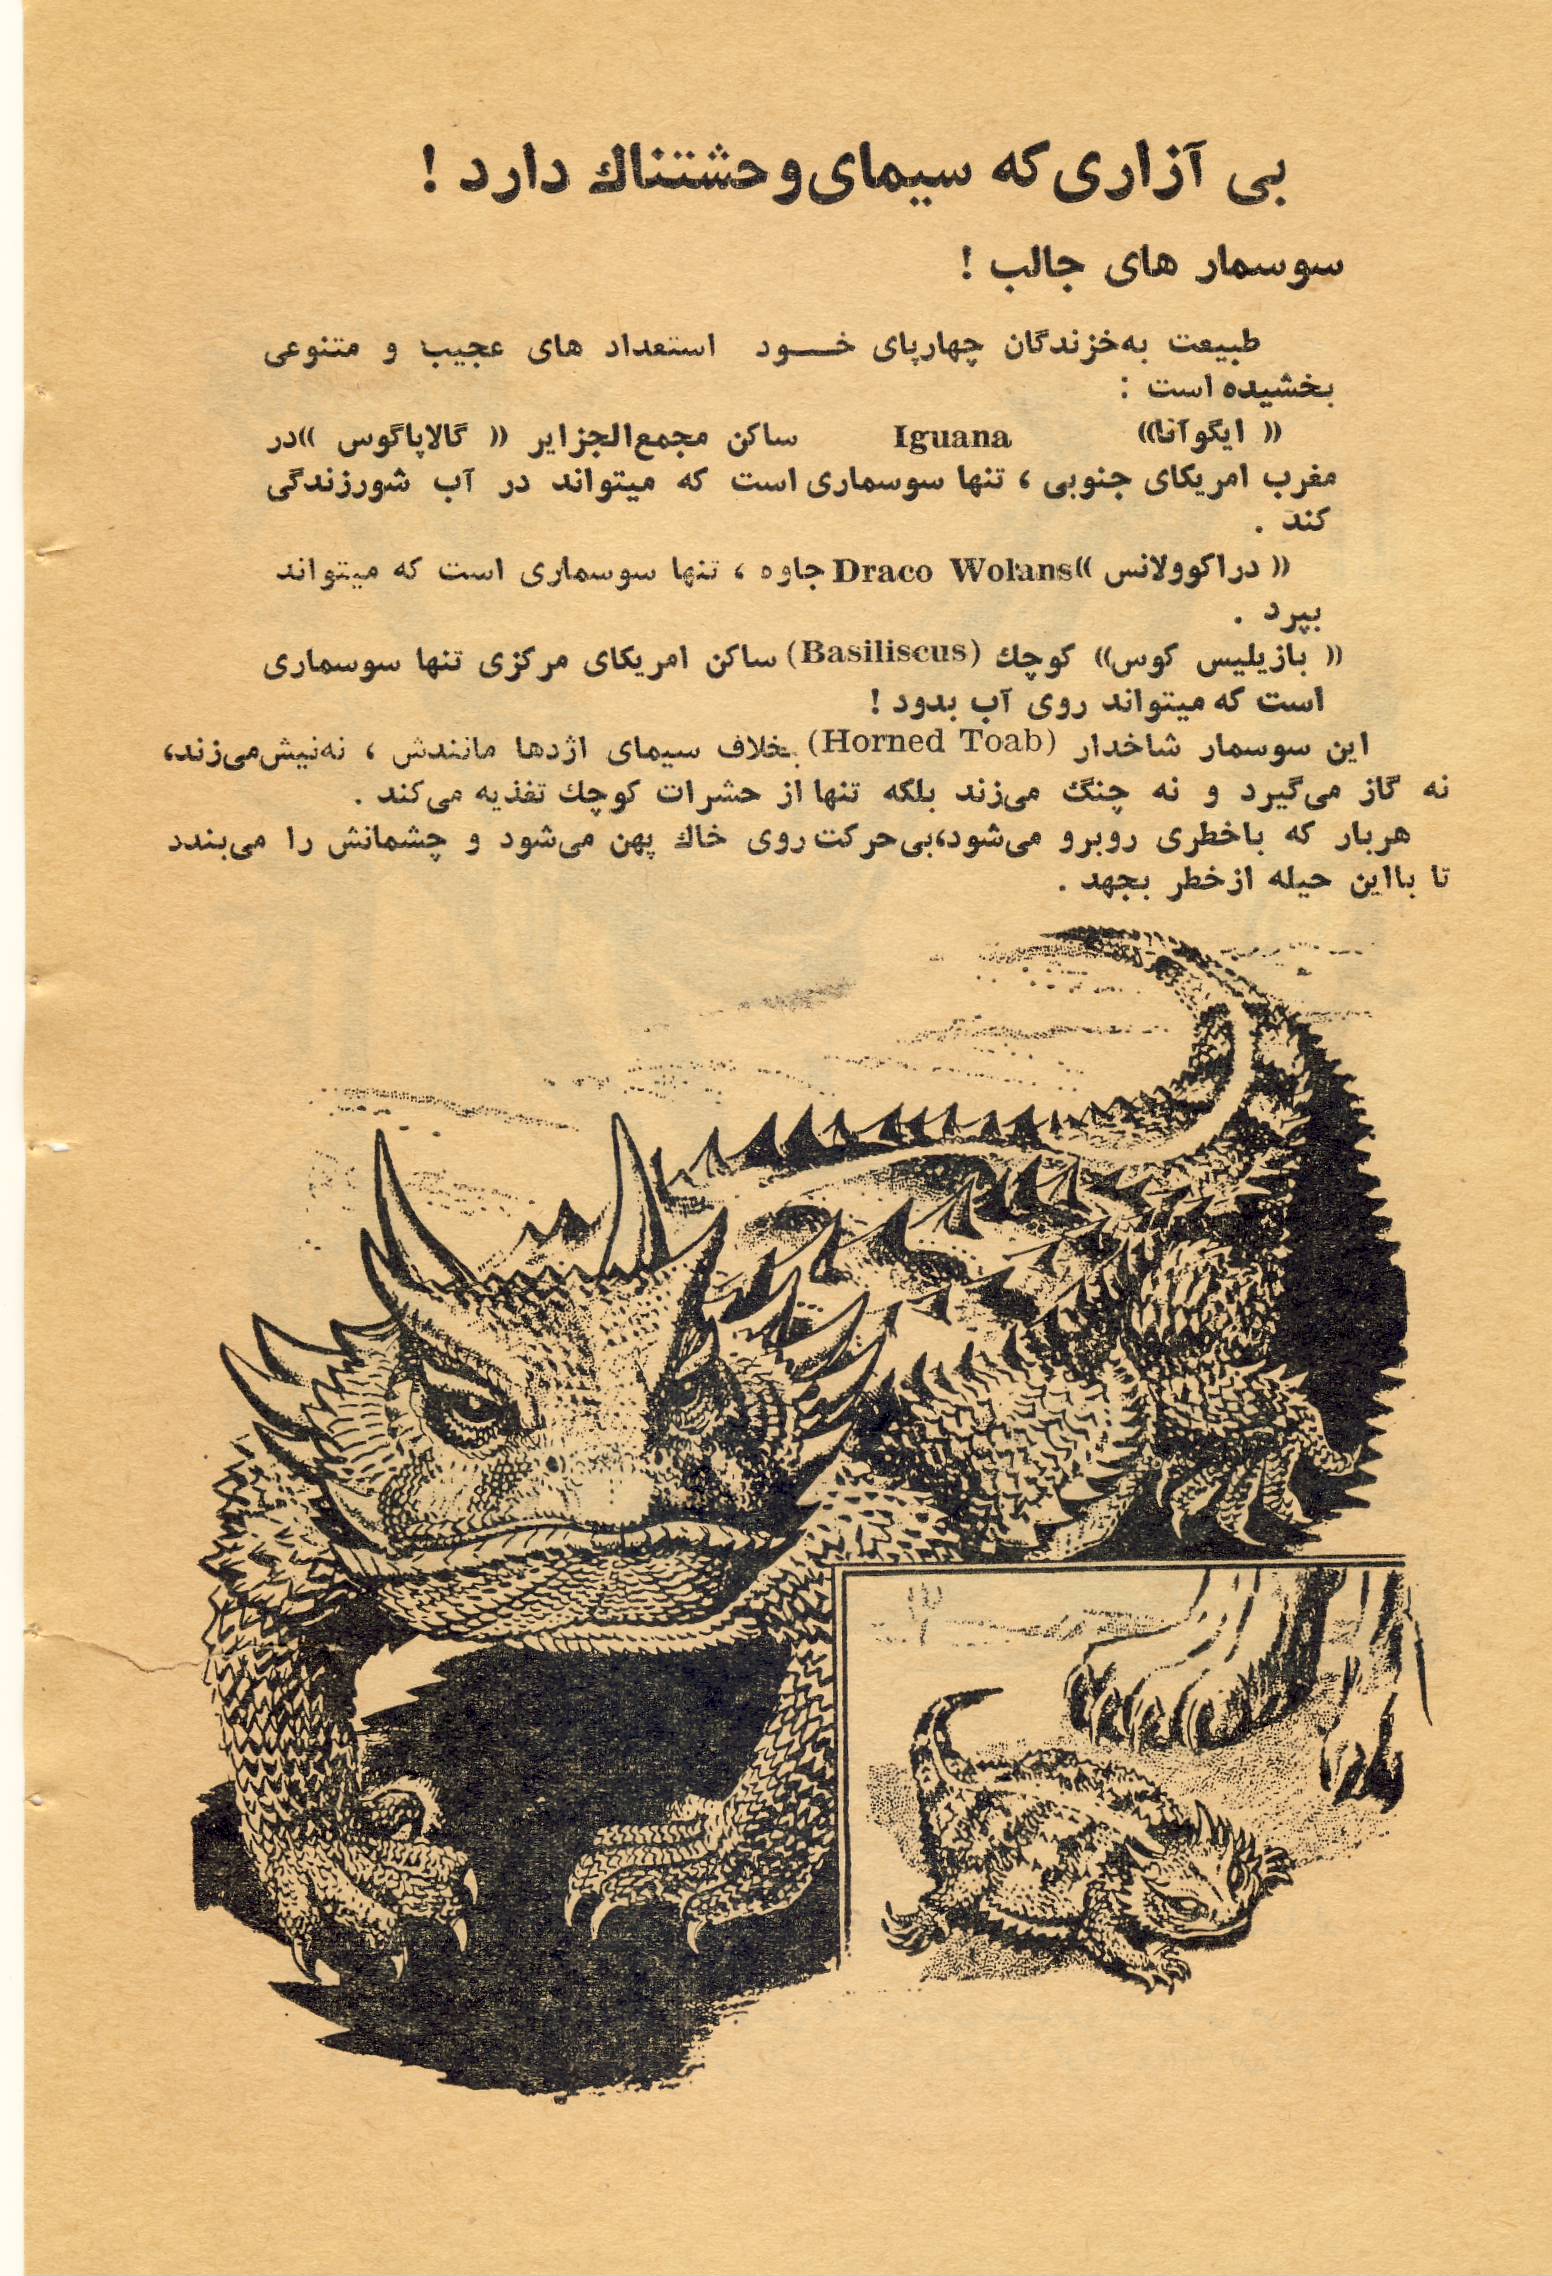 بی آزاری که سیمای وحشتناك دارد !
سوسمار های جالب !
طبیعت به‌خزندگان چهارپای خـــود استعداد های عجیب و متنوعی
بخشیده است :
(( ایگوآنا)) Iguana ساکن مجمع‌الجزایر (( گالاپاگوس ))در
مغرب امریکای جنوبی ، تنها سوسماری است که میتواند در آب شورزندگی
کند .
(( دراکوولانس ))Draco Wolans جاوه ، تنها سوسماری است که میتواند
بپرد .
(( بازیلیس کوس)) کوچك (Basiliscus) ساکن امریکای مرکزی تنها سوسماری
است که میتواند روی آب بدود !
این سوسمار شاخدار (Horned Toab) بخلاف سیمای اژدها مانندش ، نه‌نیش‌می‌زند،
نه گاز می‌گیرد و نه چنگ می‌زند بلکه تنها از حشرات کوچك تغذیه می‌کند .
هربار که باخطری روبرو می‌شود،بی‌حرکت روی خاك پهن می‌شود و چشمانش را می‌بندد
تا بااین حیله ازخطر بجهد .